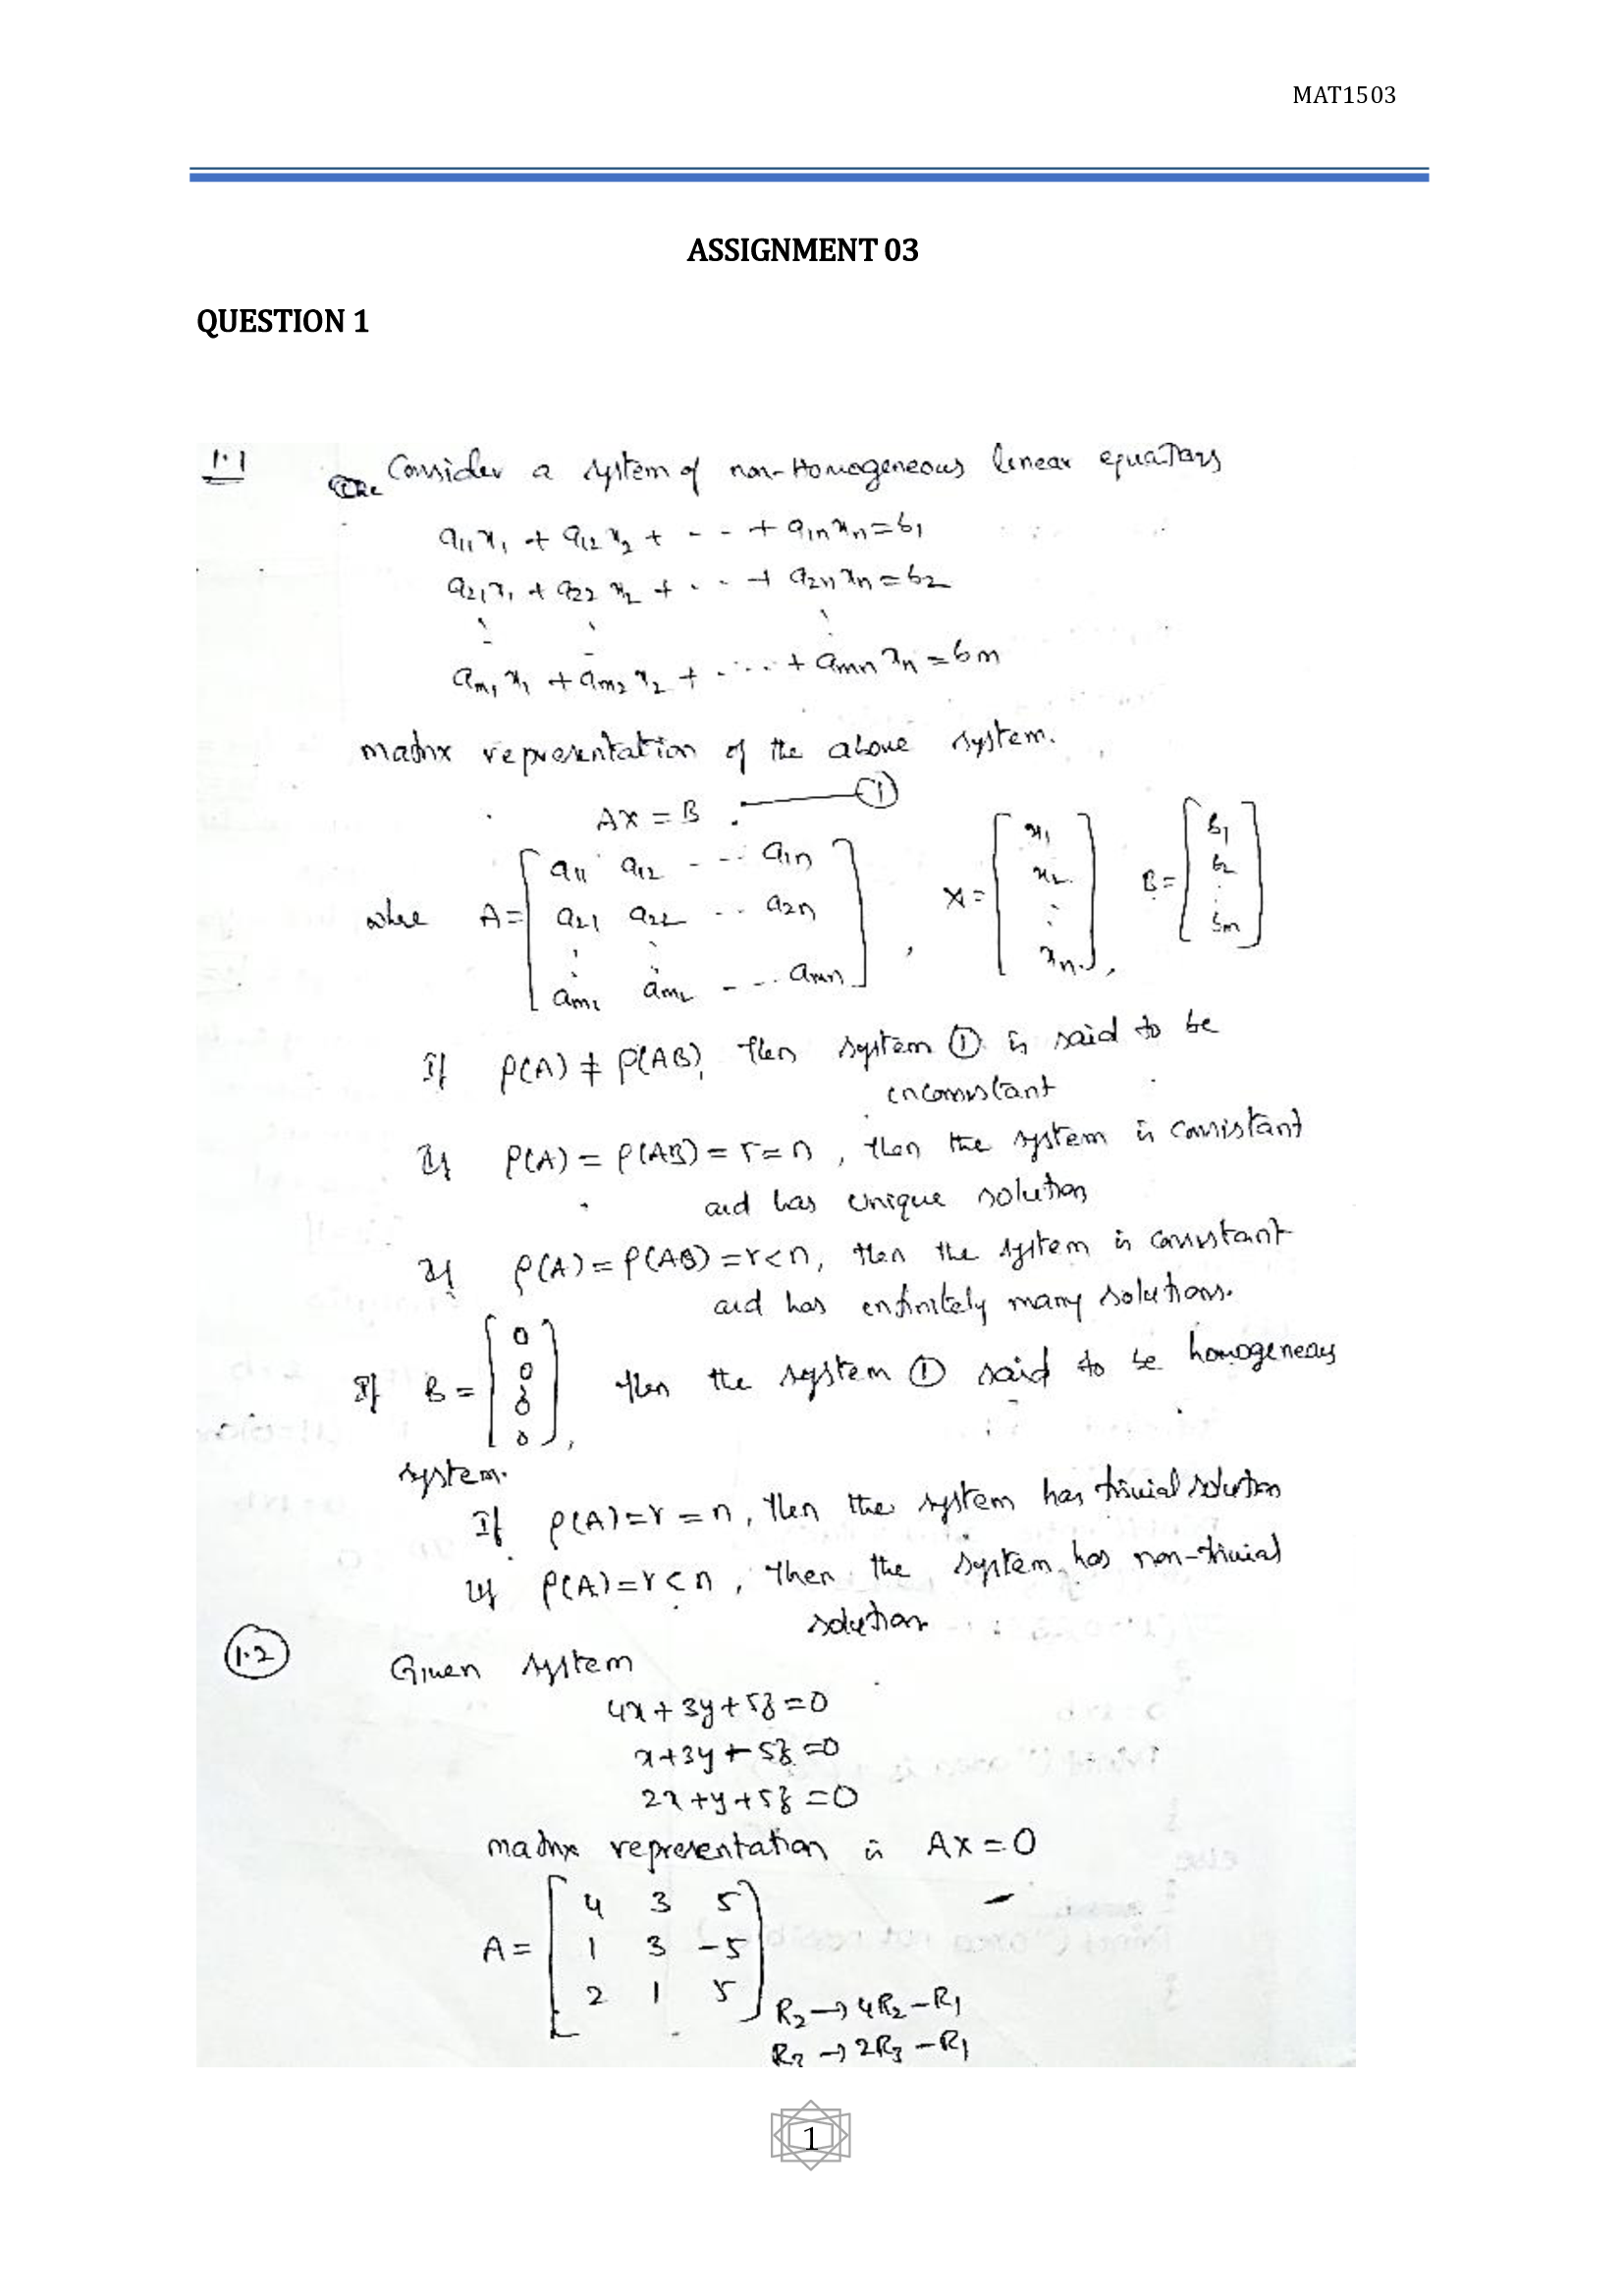 MAT1503
ASSIGNMENT 03
QUESTION 1
1.1 Consider a system of non-Homogeneous linear equations
a11x1 + a12x2 + - - + a1nxn=b1
a21x1 + a22x2 + . - + a2nxn=b2
am1x1 + am2x2 + ..... + amnxn=bm
matrix representation of the above system.
AX = B . ——— ①
where A= [ a11 a12 - - - a1n
a21 a22 - - a2n
⋮ ⋮
am1 am2 - - ... amn ] , X= [ x1 x2 ⋮ xn ], B= [ b1 b2 ⋮ bm ]
If ρ(A) ≠ ρ(AB), then system ① is said to be
inconsistant
If ρ(A) = ρ(AB) = r = n , then the system is consistant
and has unique solution
If ρ(A) = ρ(AB) = r < n, then the system is consistant
and has enfinitely many solutions.
If B = [ 0 0 0 0 ], then the system ① said to be homogeneous
system.
If ρ(A)=r = n, then the system has trivial solution
If ρ(A)=r < n , then the system has non-trivial
solution
1.2 Given system
4x+3y+5z=0
x+3y+5z=0
2x+y+5z=0
matrix representation is AX=0
A= [ 4 3 5
1 3 -5
2 1 5 ]
R2→4R2-R1
R3→2R3-R1
1